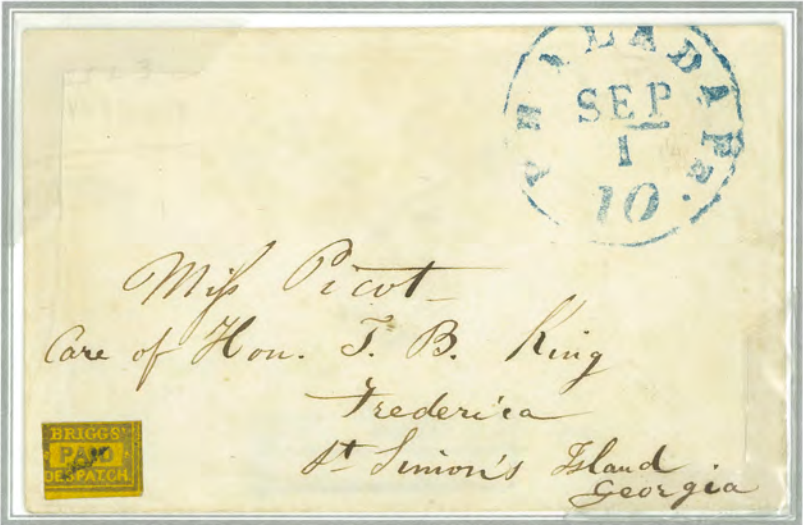 PHILADA Pa.
SEP
1
10
Miss Picot
Care of Hon. T. B. King
Frederica
St Simon's Island
Georgia
BRIGGS'
PAID
DESPATCH